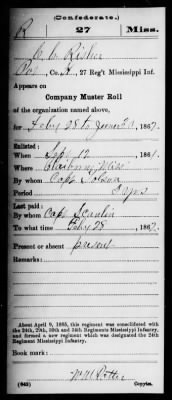 (Confederate.)
R 27 Miss.
C. C. Risher
Co. K, 27 Reg't Mississippi Inf.
Appears on
Company Muster Roll
of the organization named above,
for Feby 28 to June 30, 1862.
Enlisted:
When Sept 12, 1861.
Where Miss
By whom Capt
Period 3 yrs
Last paid:
By whom Capt Scanlin
To what time Feby 28, 1862.
Present or absent present
Remarks:
About April 9, 1865, this regiment was consolidated with
the 24th, 29th, 30th and 34th Regiments Mississippi Infantry,
and formed a new regiment which was designated the 24th
Regiment Mississippi Infantry.
Book mark:
(642) Copyist.